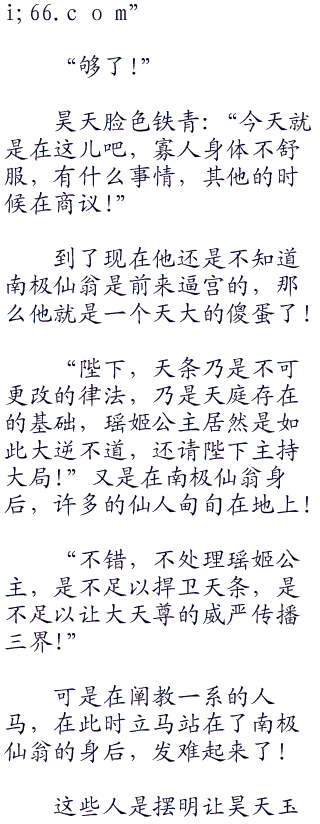 i;66.c o m”
“够了!”
昊天脸色铁青:“今天就
是在这儿吧，寡人身体不舒
服，有什么事情，其他的时
候在商议!”
到了现在他还是不知道
南极仙翁是前来逼宫的，那
么他就是一个天大的傻蛋了!
“陛下，天条乃是不可
更改的律法，乃是天庭存在
的基础，瑶姬公主居然是如
此大逆不道，还请陛下主持
大局!”又是在南极仙翁身
后，许多的仙人匍匐在地上!
“不错，不处理瑶姬公
主，是不足以捍卫天条，是
不足以让大天尊的威严传播
三界!”
可是在阐教一系的人
马，在此时立马站在了南极
仙翁的身后，发难起来了!
这些人是摆明让昊天玉